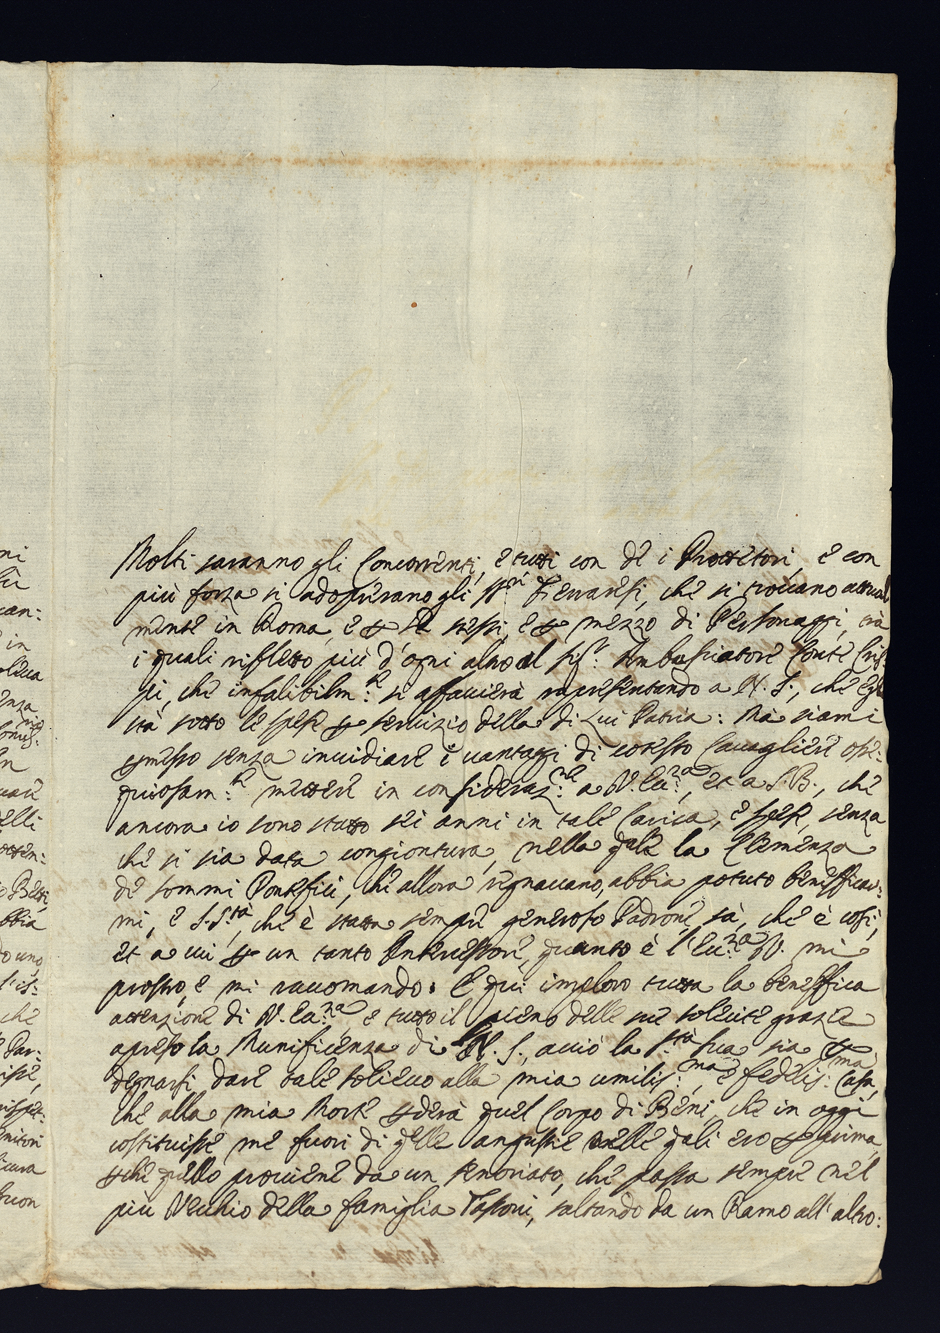 Molti saranno gli Concorrenti, e tutti con de i Protettori, e con
più forza si adoprerano gli SS.ri Ferraresi, che si trovano attual
mente in Roma, e p se stessi, e p mezzo di Personaggi, trà
i quali rifletto più d'ogni altro al Sig.r Ambasciatore Conte Cris-
pi, che infalibilm.te si affacierà rapresentando a N. S., che Egli
stà sotto le spese p servizio della di Lui Patria: Ma siami
pmesso senza invidiare i vantaggi di cotesto Cavagliere osse:
quiosam.te mettere in consideraz.ne a V. Em.za, et a S. B., che
ancora io sono stato sei anni in tale Carica, e spese, senza
che si sia data congiontura, nella q.le la Clemenza
de sommi Pontefici, che allora regnavano, abbia potuto beneficar:
mi, e S. S.tà, che è stata sempre generoso Padrone, sà, che è così,
et a cui p un tanto Intercessore, quanto è l'Em.za V. mi
prostro, e mi racomando. E qui imploro tutta la benefica
attenzione di V. Em.za, e tutto il pieno delle sue solecite grazie
apreso la Munificenza di N. S., acciò la S.tà sua sia
degnarsi dare tale solievo alla mia umilis:ma e fedelis:ma Casa,
che alla mia Morte pderà quel Corpo di Beni, che in oggi
costituisse me fuori di q.lle angustie nelle q.ali ero p prima,
pche quello proviene da un senoriato, che passa sempre nel
più Vechio della famiglia Tassoni, saltando da un Ramo all'altro: